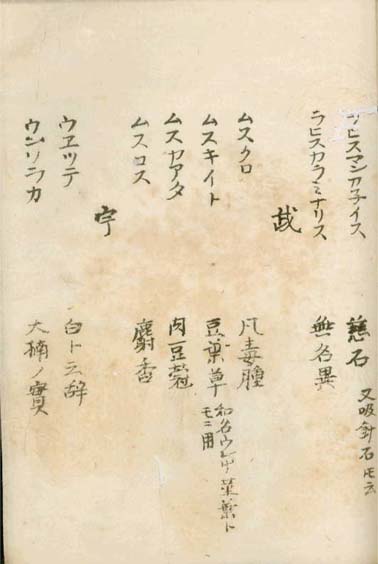 ラヒスマシ子イス 慈石 又吸針石トモ云
ラヒスカラミナリス 無名異
武
ムスクロ 凡毒腫
ムスキイト 豆葉草 和名 葉ト モニ用
ムスカアタ 肉豆蔲
ムスコス 麝香
宇
ウエツテ 白ト云辞
ウンソラカ 大楠ノ實